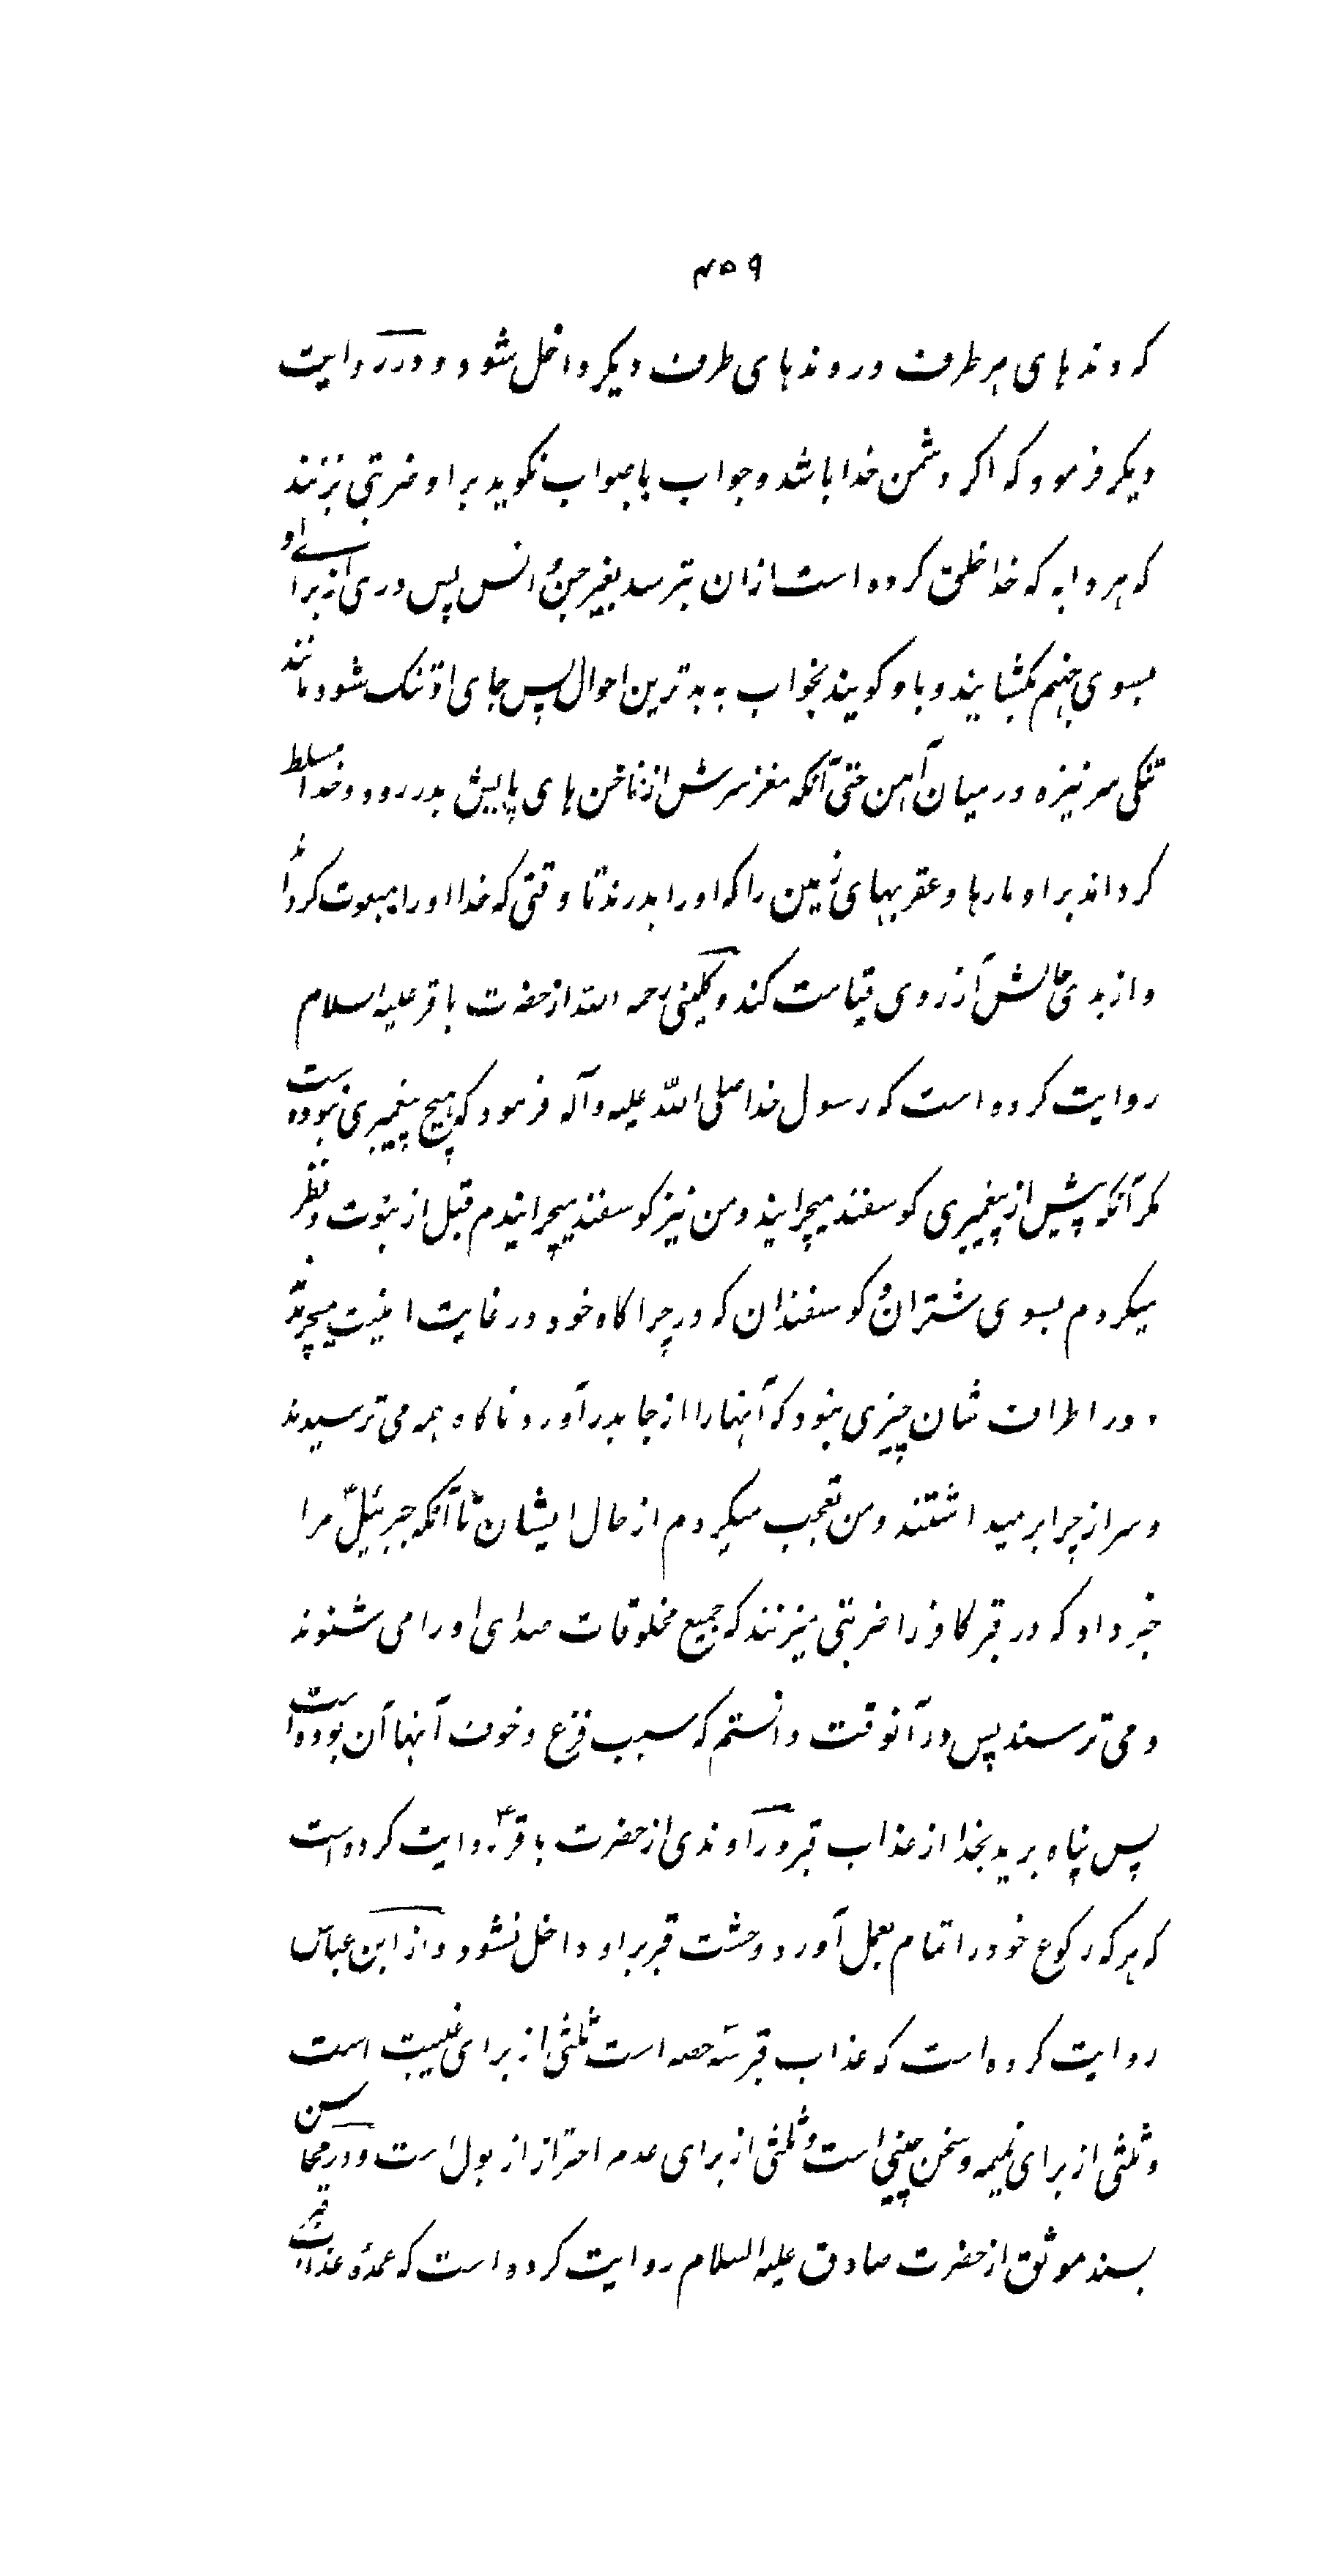 ۴۵۹
که دندهای هر طرف در دندهای طرف دیکر داخل شود و در روایت
دیکر فرمود که اکر دشمن خدا باشد و جواب با صواب نکوید بر او ضربتی بزنند
که هر دابه که خدا خلق کرده است ازان بترسد بغیر جن و انس پس دری از برای او
بسوی جهنم بکشایند و باو کویند بخواب به بدترین احوال پس جای او تنک شود مانند
تنکی سر نیزه در میان آهن حتی آنکه مغز سرش از ناخن های پایش بدر رود و خدا مسلط
کرداند بر او مارها و عقربهای زمین را که او را بدرند تا وقتی که خدا او را مبعوث کرداند
و از بدی حالش آرزوی قیامت کند و کلینی رحمه الله از حضرت باقر علیه السلام
روایت کرده است که رسول خدا صلی الله علیه و آله فرمود که هیچ پیغمبری نبوده است
مکر آنکه پیش از پیغمبری کوسفند میچرانید و من نیز کوسفند میچرانیدم قبل از نبوت و نظر
میکردم بسوی شتران و کوسفندان که در چراکاه خود در غایت امنیت میچریدند
و در اطراف شان چیزی نبود که آنها را از جا بدر آورد ناکاه همه می ترسیدند
و سر از چرا بر میداشتند و من تعجب میکردم از حال ایشان تا آنکه جبرئیل ع مرا
خبر داد که در قبر کافر را ضربتی میزنند که جمیع مخلوقات صدای او را می شنوند
و می ترسند پس در آنوقت دانستم که سبب فزع و خوف آنها آن بوده است
پس پناه برید بخدا از عذاب قبر و راوندی از حضرت باقر ع روایت کرده است
که هر که رکوع خود را تمام بعمل آورد وحشت قبر بر او داخل نشود و از ابن عباس
روایت کرده است که عذاب قبر سه حصه است ثلثی از برای غیبت است
و ثلثی از برای نمیمه و سخن چینی است و ثلثی از برای عدم احتراز از بول است و در محاسن
بسند موثق از حضرت صادق علیه السلام روایت کرده است که عمدۀ عذاب قبر